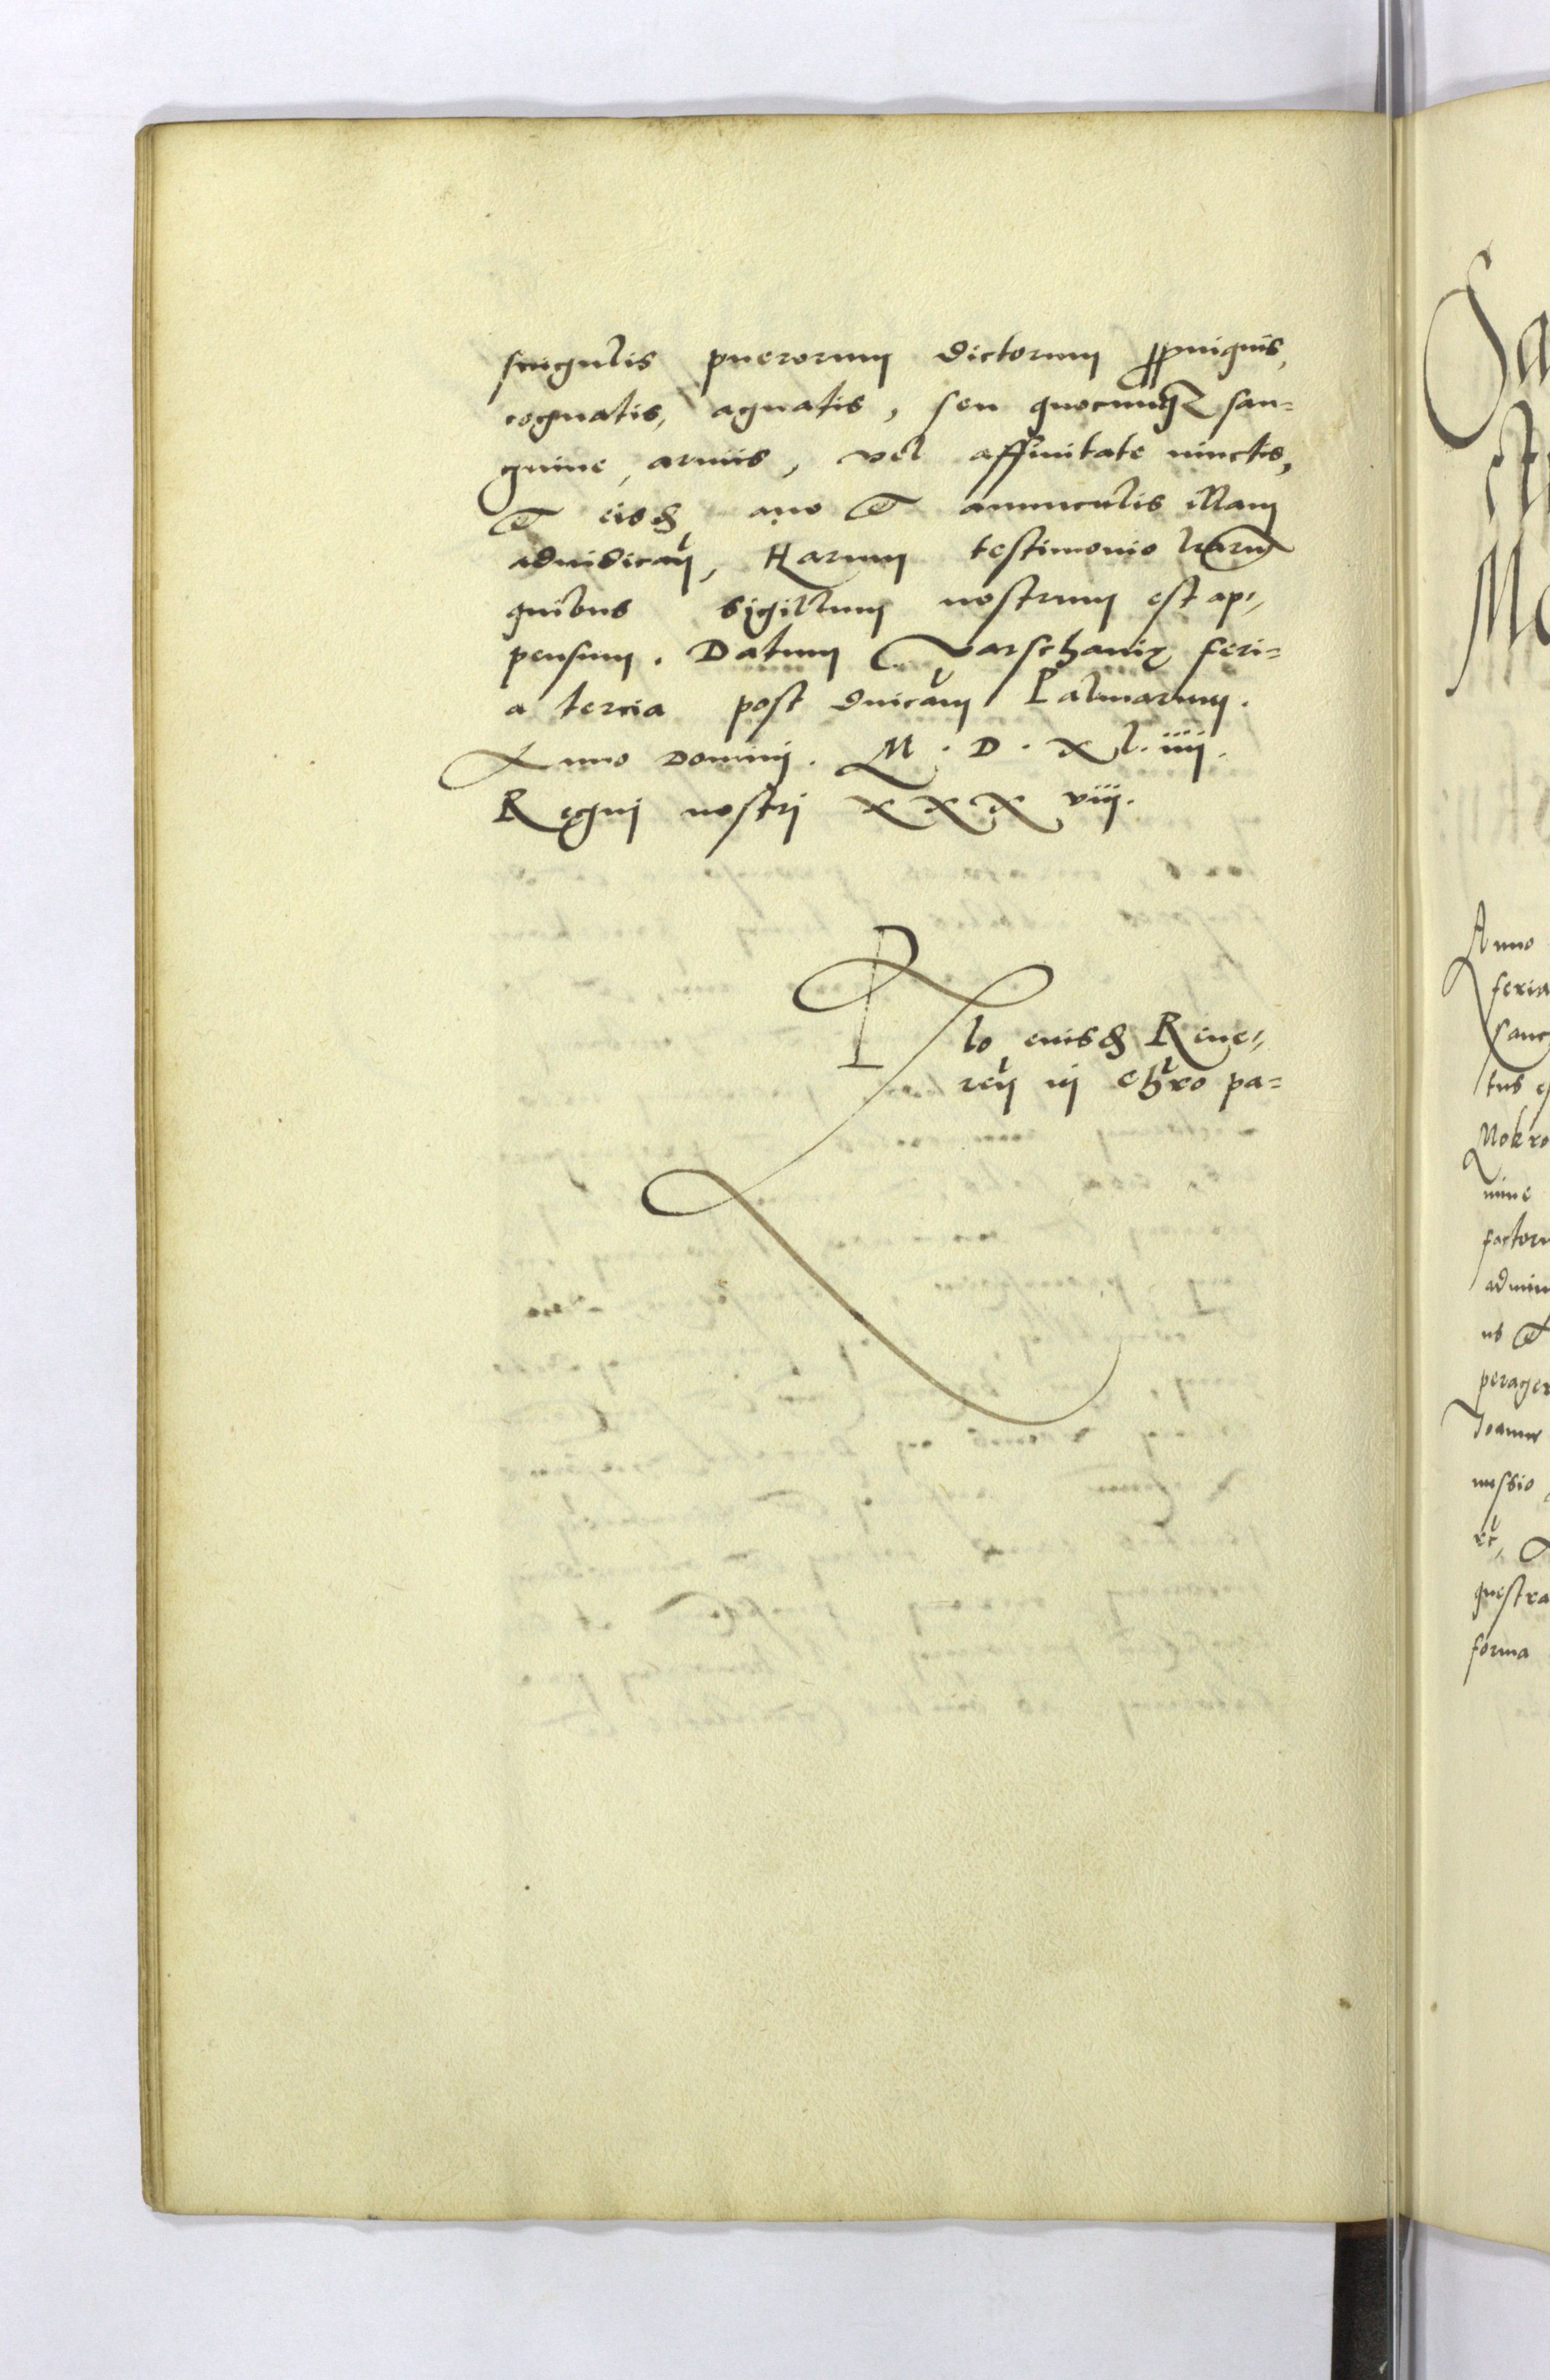 singulis puerorum dictorum ꝓpinquis,
cognatis, agnatis, seu quocunqꝫ san=
guine, armis, vel affinitate iunctis,
et eisd auo et auunculis illam
adiudicam̃, Harum testimonio lrarum
quibus sigillum nostrum est ap=
pensum. Datum Varschauię feri=
a tercia post dnicam Palmarum.
Anno Domini. M. D. XL. iiii.
Regni nostri XXX viii.
lo eiusd Reue=
ren in chro pa=
Sa
Mo
Anno
feria
sanc
tus es
Mokro
nine
factoru
admin
us et
perager
Joanne
missio
rc,
questra
forma